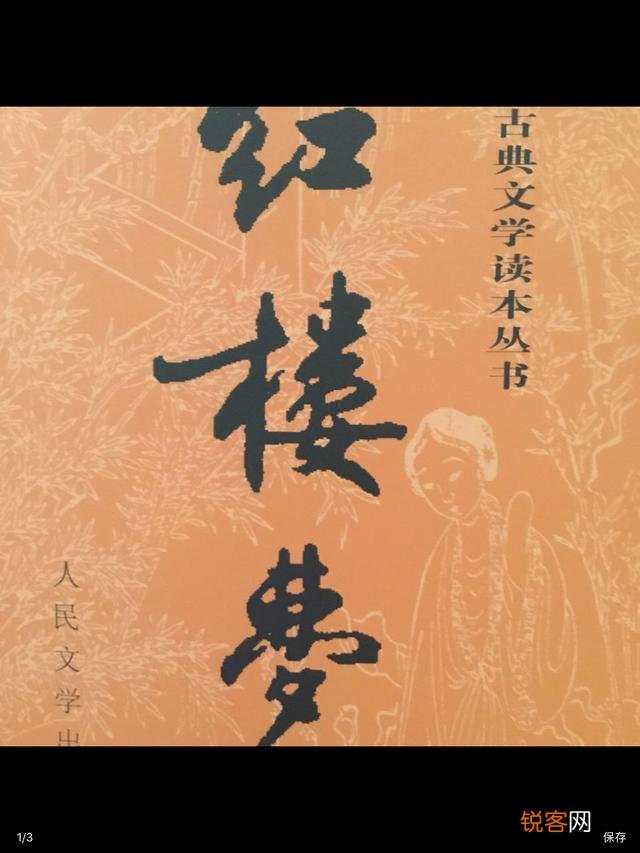 古典文学读本丛书
红楼梦
人民文学出
1/3
锐客网
保存